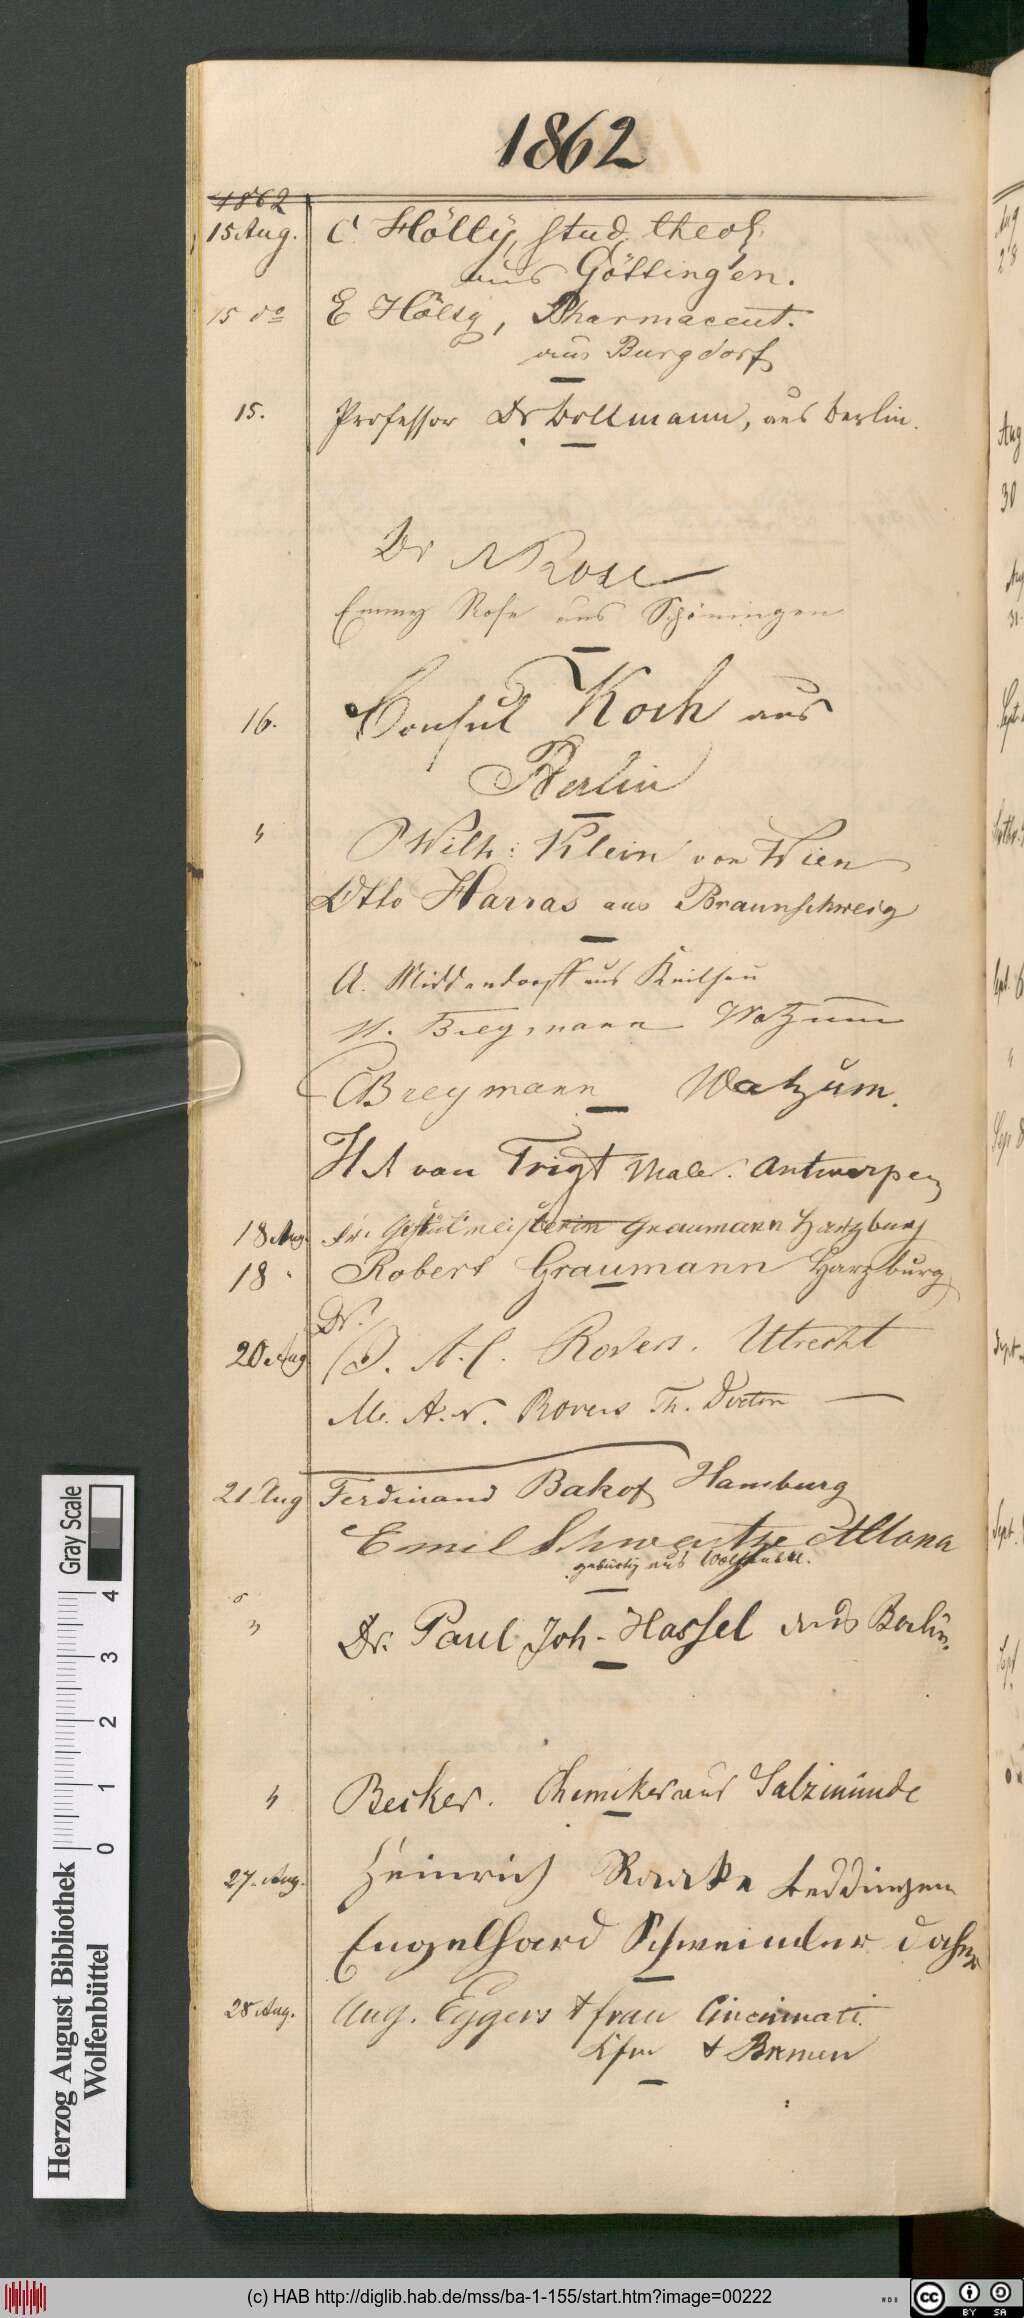 1862
1862
15 Aug. C. Hölty, stud. theol.
aus Göttingen.
15 do E Hölty, Pharmaceut.
aus Burgdorf
15. Professor Dr. Bollmann, aus Berlin.
Dr A Rose
Emmy Rose aus Schöningen
16. Consul Koch aus
Berlin
" Wilh: Klein von Wien
Otto Harras aus Braunschweig
A. Middendorff aus
H. Breymann Watzum
C Breymann Watzum.
H A van Trigt Maler. Antwerpen
18 Aug. Fr. Gestütmeisterin Graumann Harzburg
18 " Robert Graumann Harzburg
Dr.
20 Aug J. A. C. Rovers. Utrecht
M. A. N. Rovers Th. Doctor —
21. Aug Ferdinand Bakof Hamburg
Emil Schwartze Altona
gebürtig aus Wolfenbüttel.
" Dr. Paul Joh. Hassel aus Berlin.
" Becker. Chemiker aus Salzmünde
27. Aug. Heinrich Raacke Beddingen
Engelhard Schweinler daher
28 Aug. Aug. Eggers & Frau Cincinnati.
Kfm & Bremen
Gray Scale
0 1 2 3 4
Herzog August Bibliothek
Wolfenbüttel
(c) HAB http://diglib.hab.de/mss/ba-1-155/start.htm?image=00222
cc BY SA